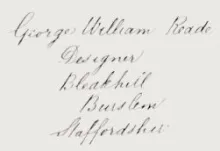 George William Reade
Designer
Bleakhill
Burslem
Staffordshir